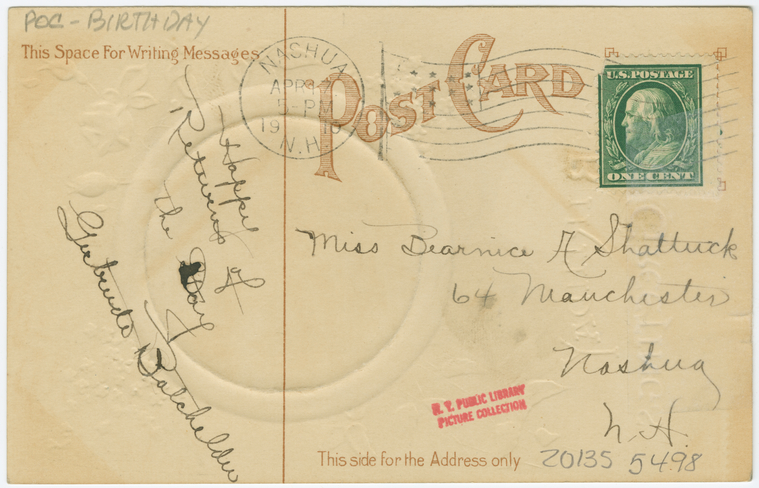 POC - BIRTHDAY
This Space For Writing Messages
NASHUA
APR
5-PM
1910
N.H.
POST CARD
U.S. POSTAGE
ONE CENT
Happy
Returns of
the Day
Gertrude Batchelder
Miss Bearnice A Shattuck
64 Manchester
Nashua
N.H.
N. Y. PUBLIC LIBRARY
PICTURE COLLECTION
This side for the Address only
20135 5498